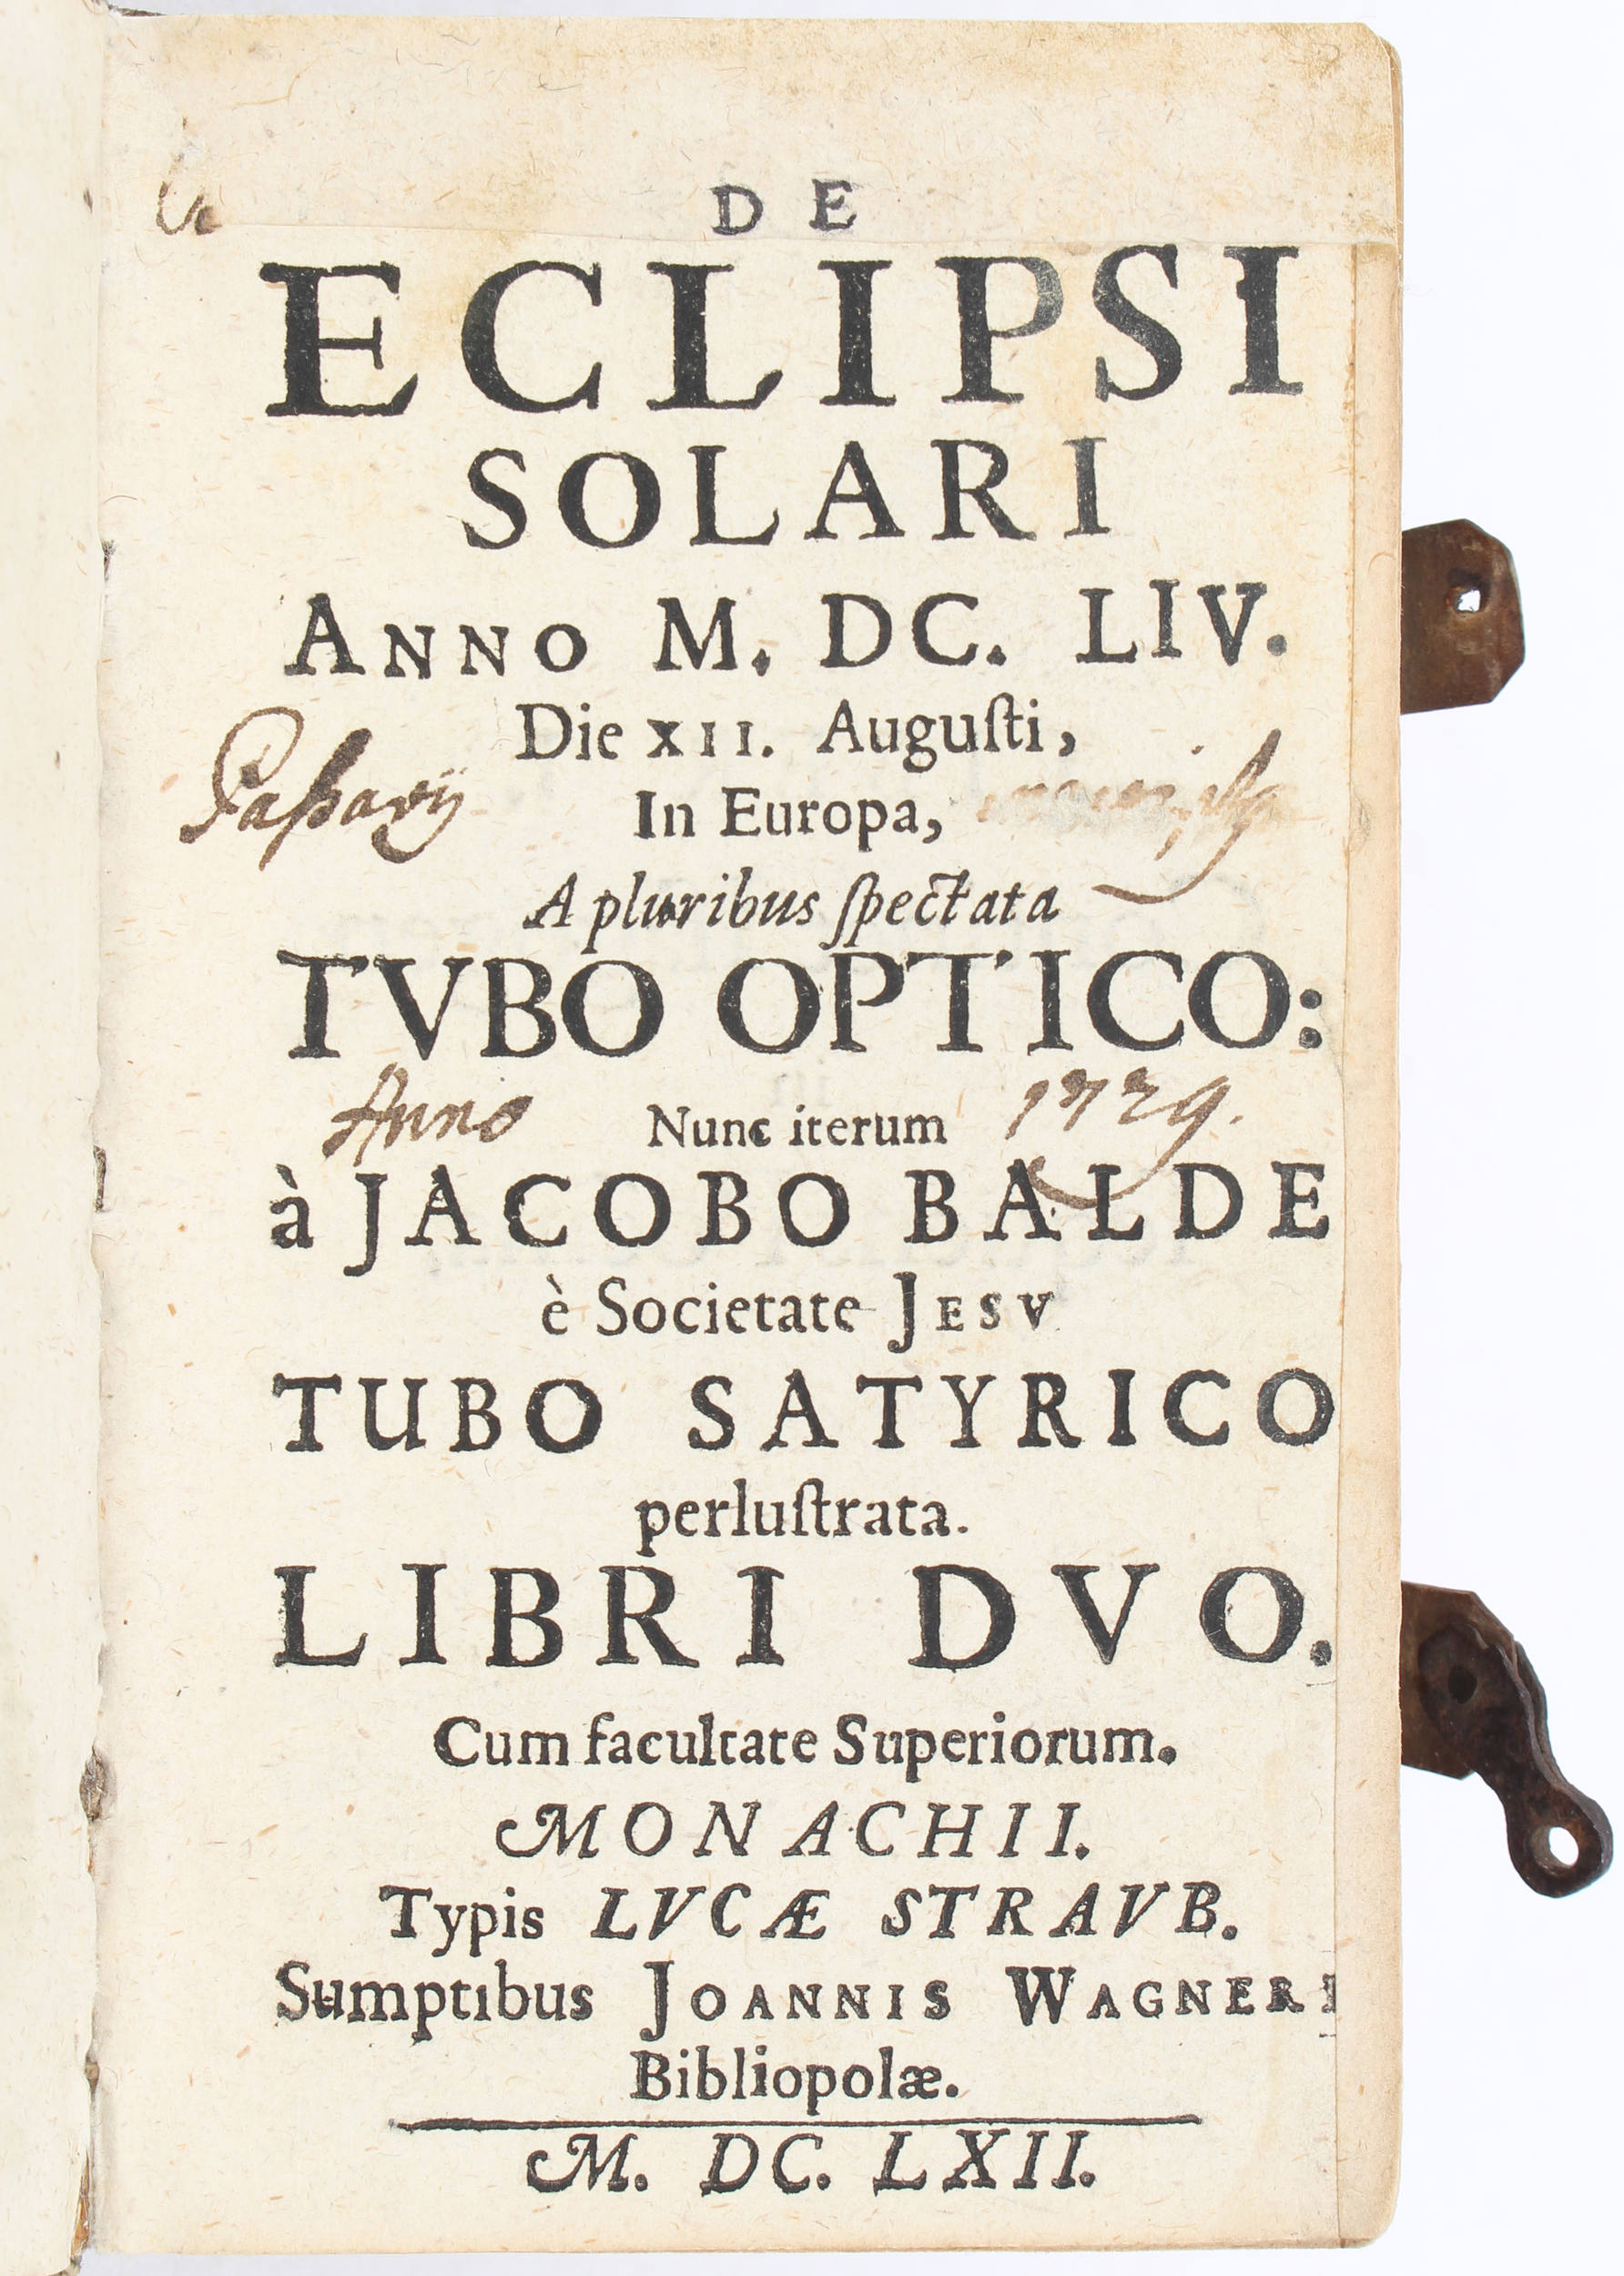 DE
ECLIPSI
SOLARI
ANNO M. DC. LIV.
Die XII. Auguſti,
Paſſavij
In Europa,
A pluribus ſpectata
TVBO OPTICO:
Anno Nunc iterum 1729.
à JACOBO BALDE
è Societate JESV
TUBO SATYRICO
perluſtrata.
LIBRI DVO.
Cum facultate Superiorum.
MONACHII.
Typis LVCÆ STRAVB.
Sumptibus JOANNIS WAGNERI
Bibliopolæ.
M. DC. LXII.